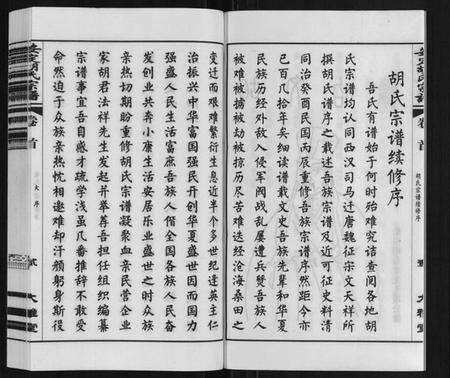 胡氏宗譜續修序
吾氏有譜始于何時殆難究诘查阅各地胡
氏宗譜均认同西汉司马迁唐魏征宋文天祥所
撰胡氏譜序之载述吾族宗譜及近可征史料清
同治癸酉民国丙辰重修吾族宗譜序然距今亦
已百几拾年矣细读譜载文史吾族先輩和华夏
民族历经外敌入侵军阀战乱屡遭兵燹吾族人
被难被擄被劫被掠历尽苦难迭经沧海桑田之
变迁而艰难繁衍生息近半个多世纪逢英主仁
治振兴中华富国强民开创华夏盛世因而国力
强盛人民生活富庶吾族人偕全国各族人民奋
发创业共奔小康生活安居乐业盛世之时众族
亲热切期盼重修胡氏宗譜凝聚血亲民营企业
家胡君法祥先生发起并举荐吾担任组织编纂
宗譜事宜吾自惑才疏学浅虽几番推辞不敢受
命然迫于众族亲热忱相邀难却汗颜躬身斯役
卷首
胡氏宗譜續修序
壹
大雅堂
安定胡氏宗譜
卷首
大序
貳
大雅堂